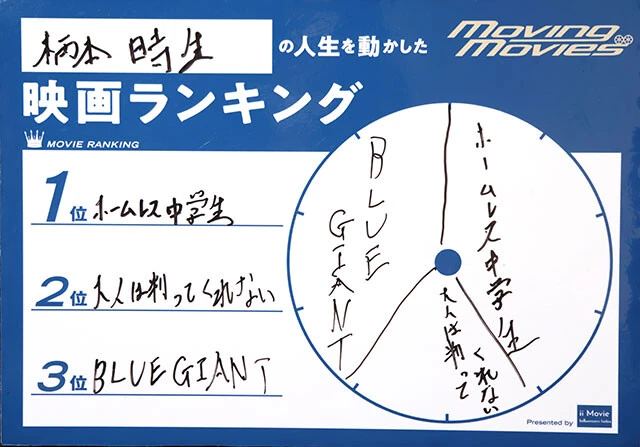 柄本 時生 の人生を動かした
Moving Movies
映画ランキング
MOVIE RANKING
1位 ホームレス中学生
2位 大人は判ってくれない
3位 BLUE GIANT
BLUE
GIANT
ホームレス中学生
大人は判って
くれない
Presented by
ii Movie